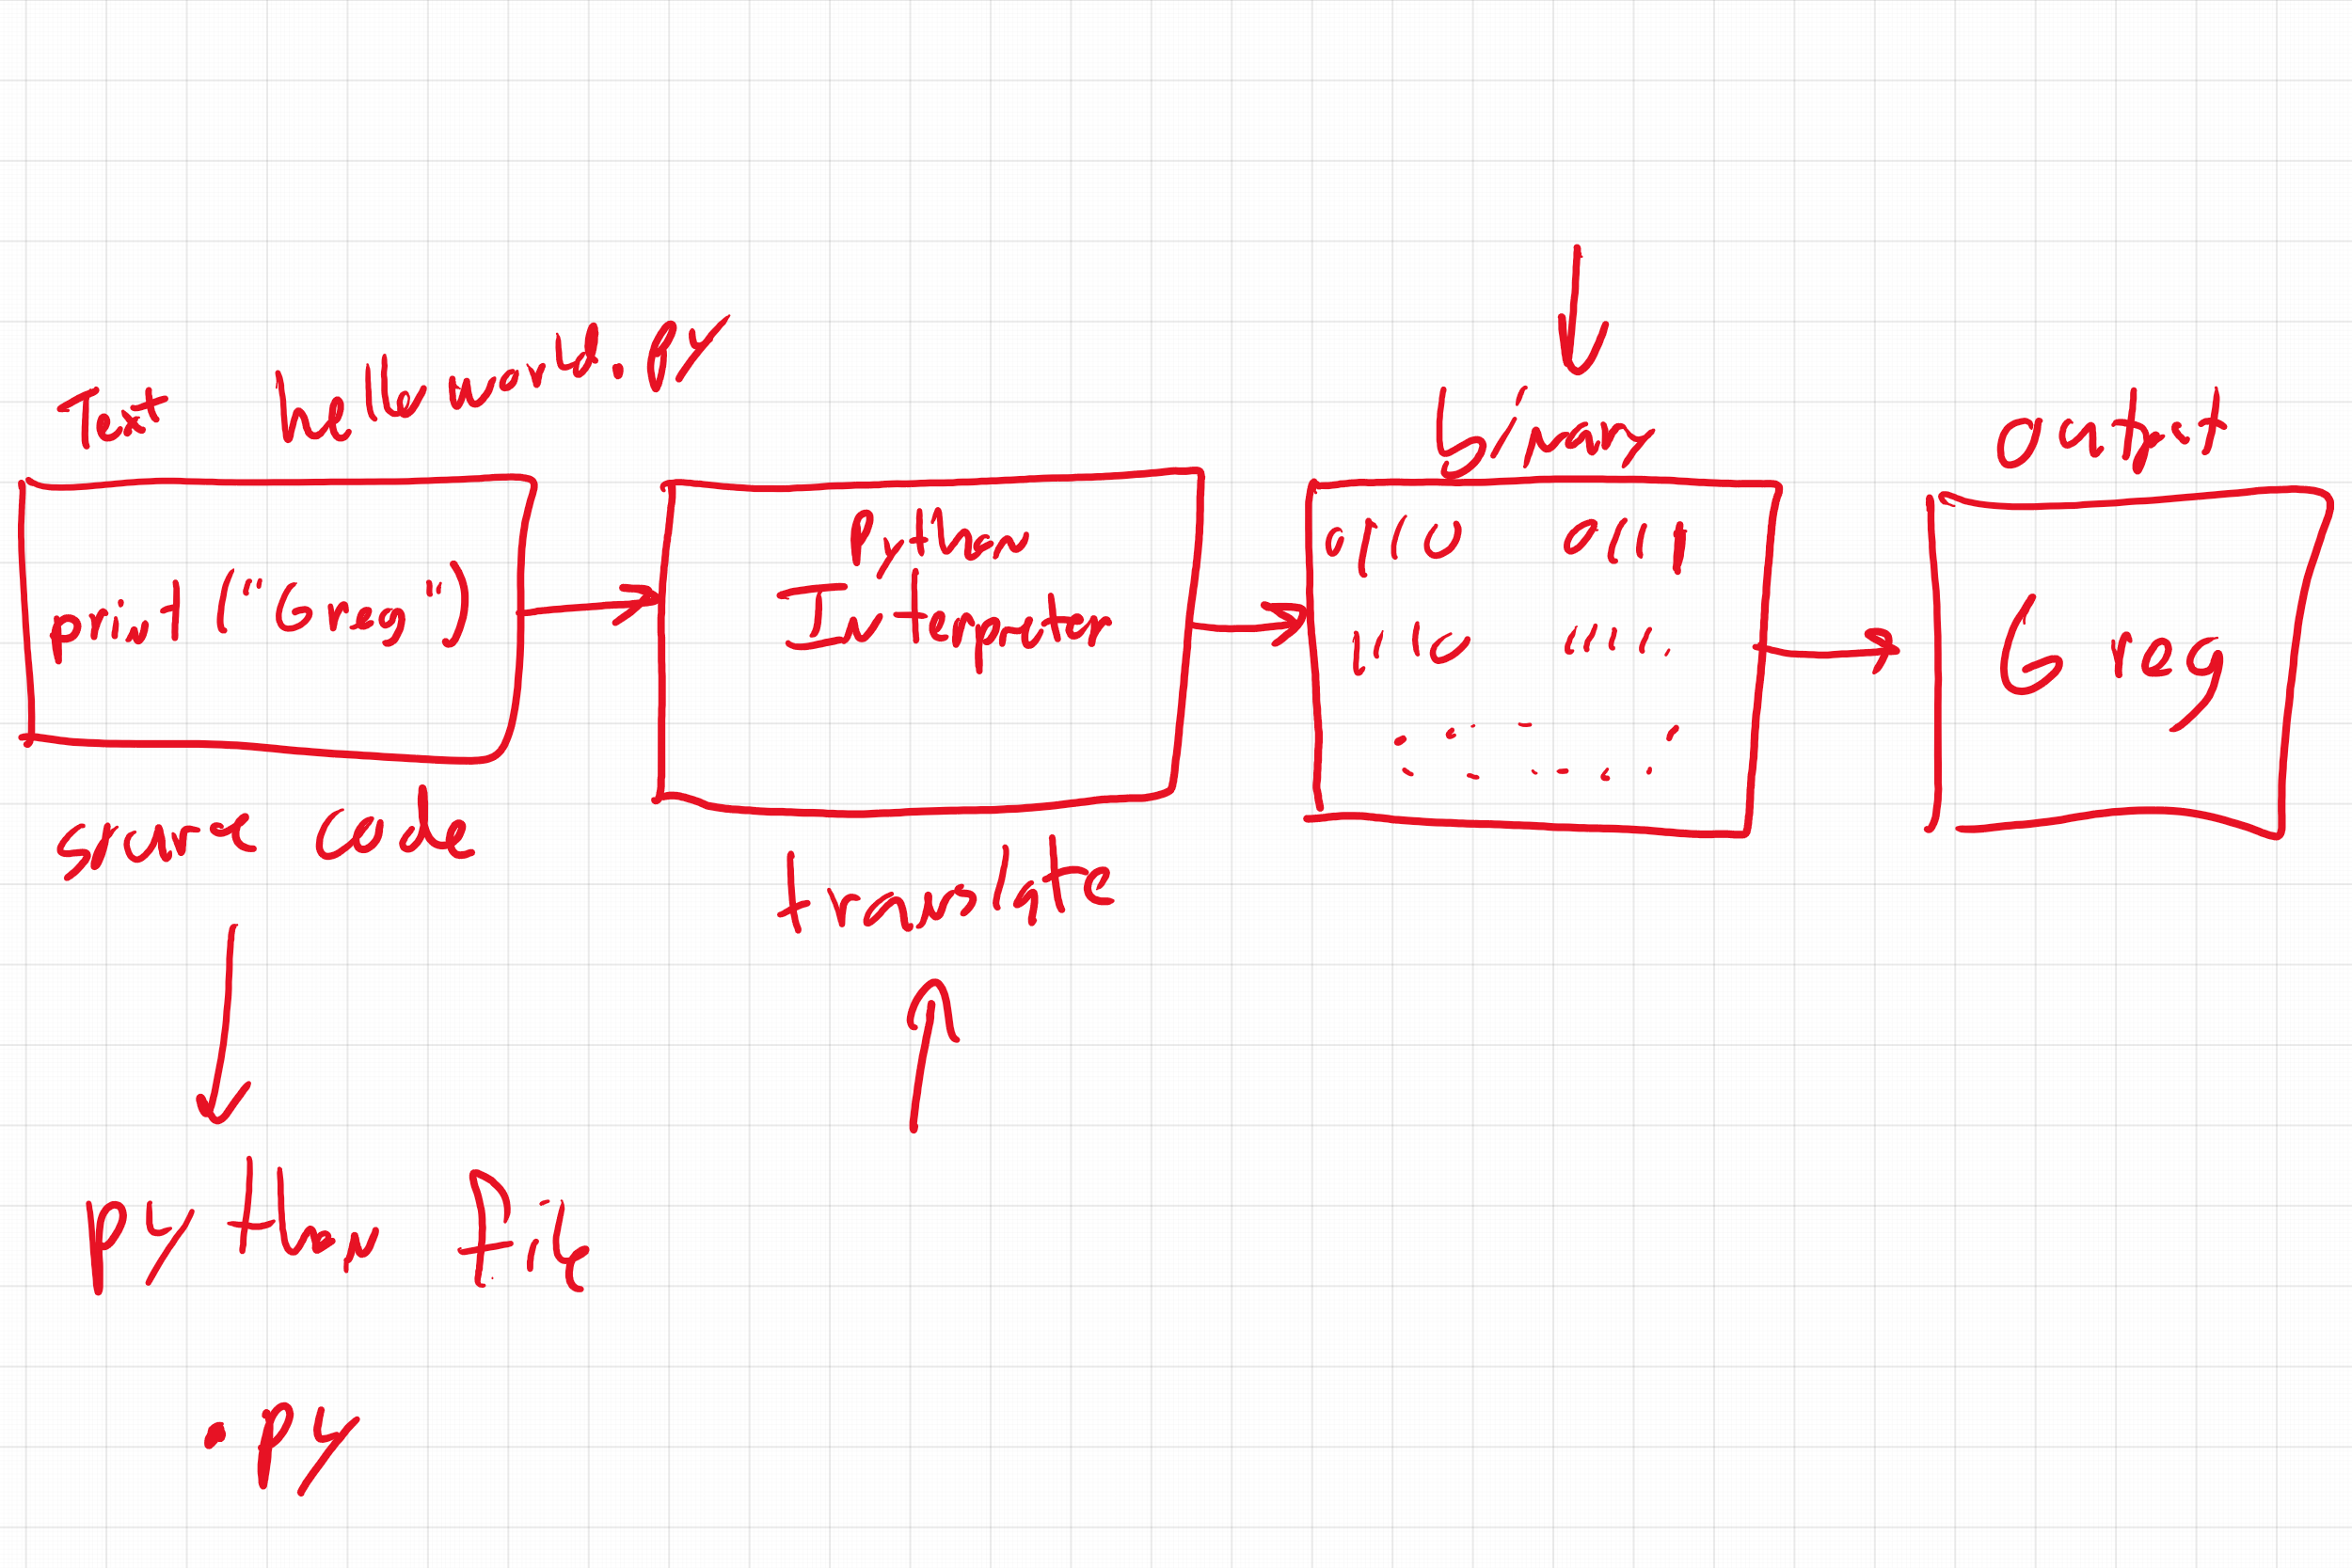 Text helloworld.py
print("Greg")
source code
python file
.py
Python
Interpreter
translate
binary
0110 0111
1110
output
Greg